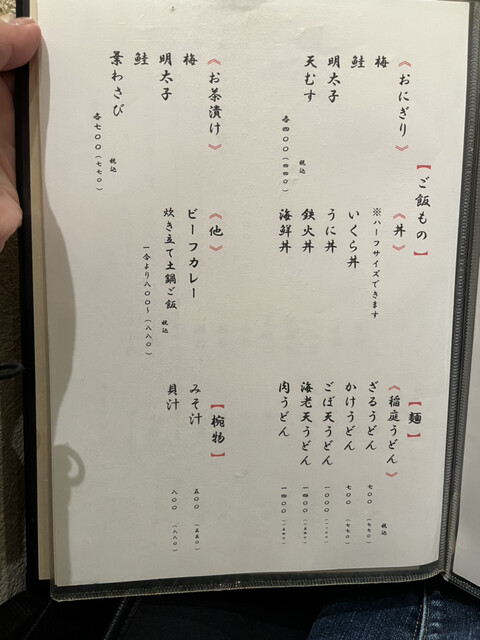 【ご飯もの】
《おにぎり》
梅
鮭
明太子
天むす
各四〇〇(四四〇)
税込
《お茶漬け》
梅
明太子
鮭
葉わさび
各七〇〇(七七〇)
税込
《丼》
※ハーフサイズできます
いくら丼
うに丼
鉄火丼
海鮮丼
《他》
ビーフカレー
炊き立て土鍋ご飯
一合より八〇〇〜(八八〇)
税込
【麺】
《稲庭うどん》
税込
ざるうどん 七〇〇(七七〇)
かけうどん 七〇〇(七七〇)
ごぼ天うどん 一〇〇〇(一一〇〇)
海老天うどん 一四〇〇(一五四〇)
肉うどん 一四〇〇(一五四〇)
【椀物】
みそ汁 五〇〇(五五〇)
貝汁 八〇〇(八八〇)